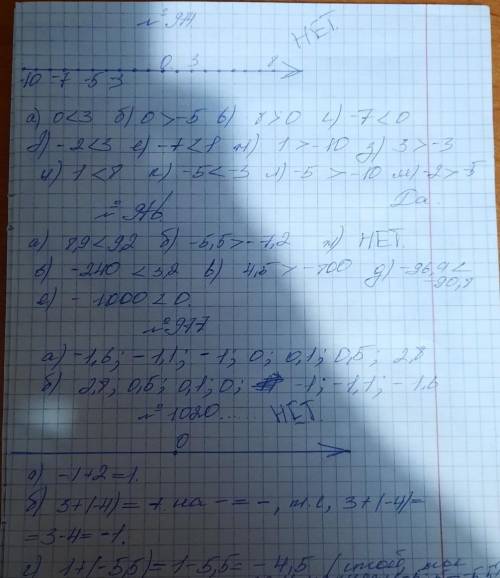 № 974.
НЕТ.
0 3 8
-10 -7 -5 -3
а) 0<3 б) 0>-5 в) 8>0 г) -7<0
д) -2<3 е) -7<8 ж) 1>-10 з) 3>-3
и) 1<8 к) -5<-3 л) -5>-10 м) -2>-5
Да.
№ 976.
а) 8,9<9,2 б) -5,5>-7,2 ж) НЕТ.
в) -240<3,2 в) 4,5>-700 д) -96,9<
-90,3
е) -1000<0.
№ 977
а) -1,6; -1,1; -1; 0; 0,1; 0,5; 2,8
б) 2,8; 0,5; 0,1; 0; -1; -1,1; -1,6
№ 1020. НЕТ.
0
а) -1+2=1.
б) 3+(-4)= + на - = -, т.е, 3+(-4)=
=3-4=-1.
г) 1+(-5,5)=1-5,5=-4,5